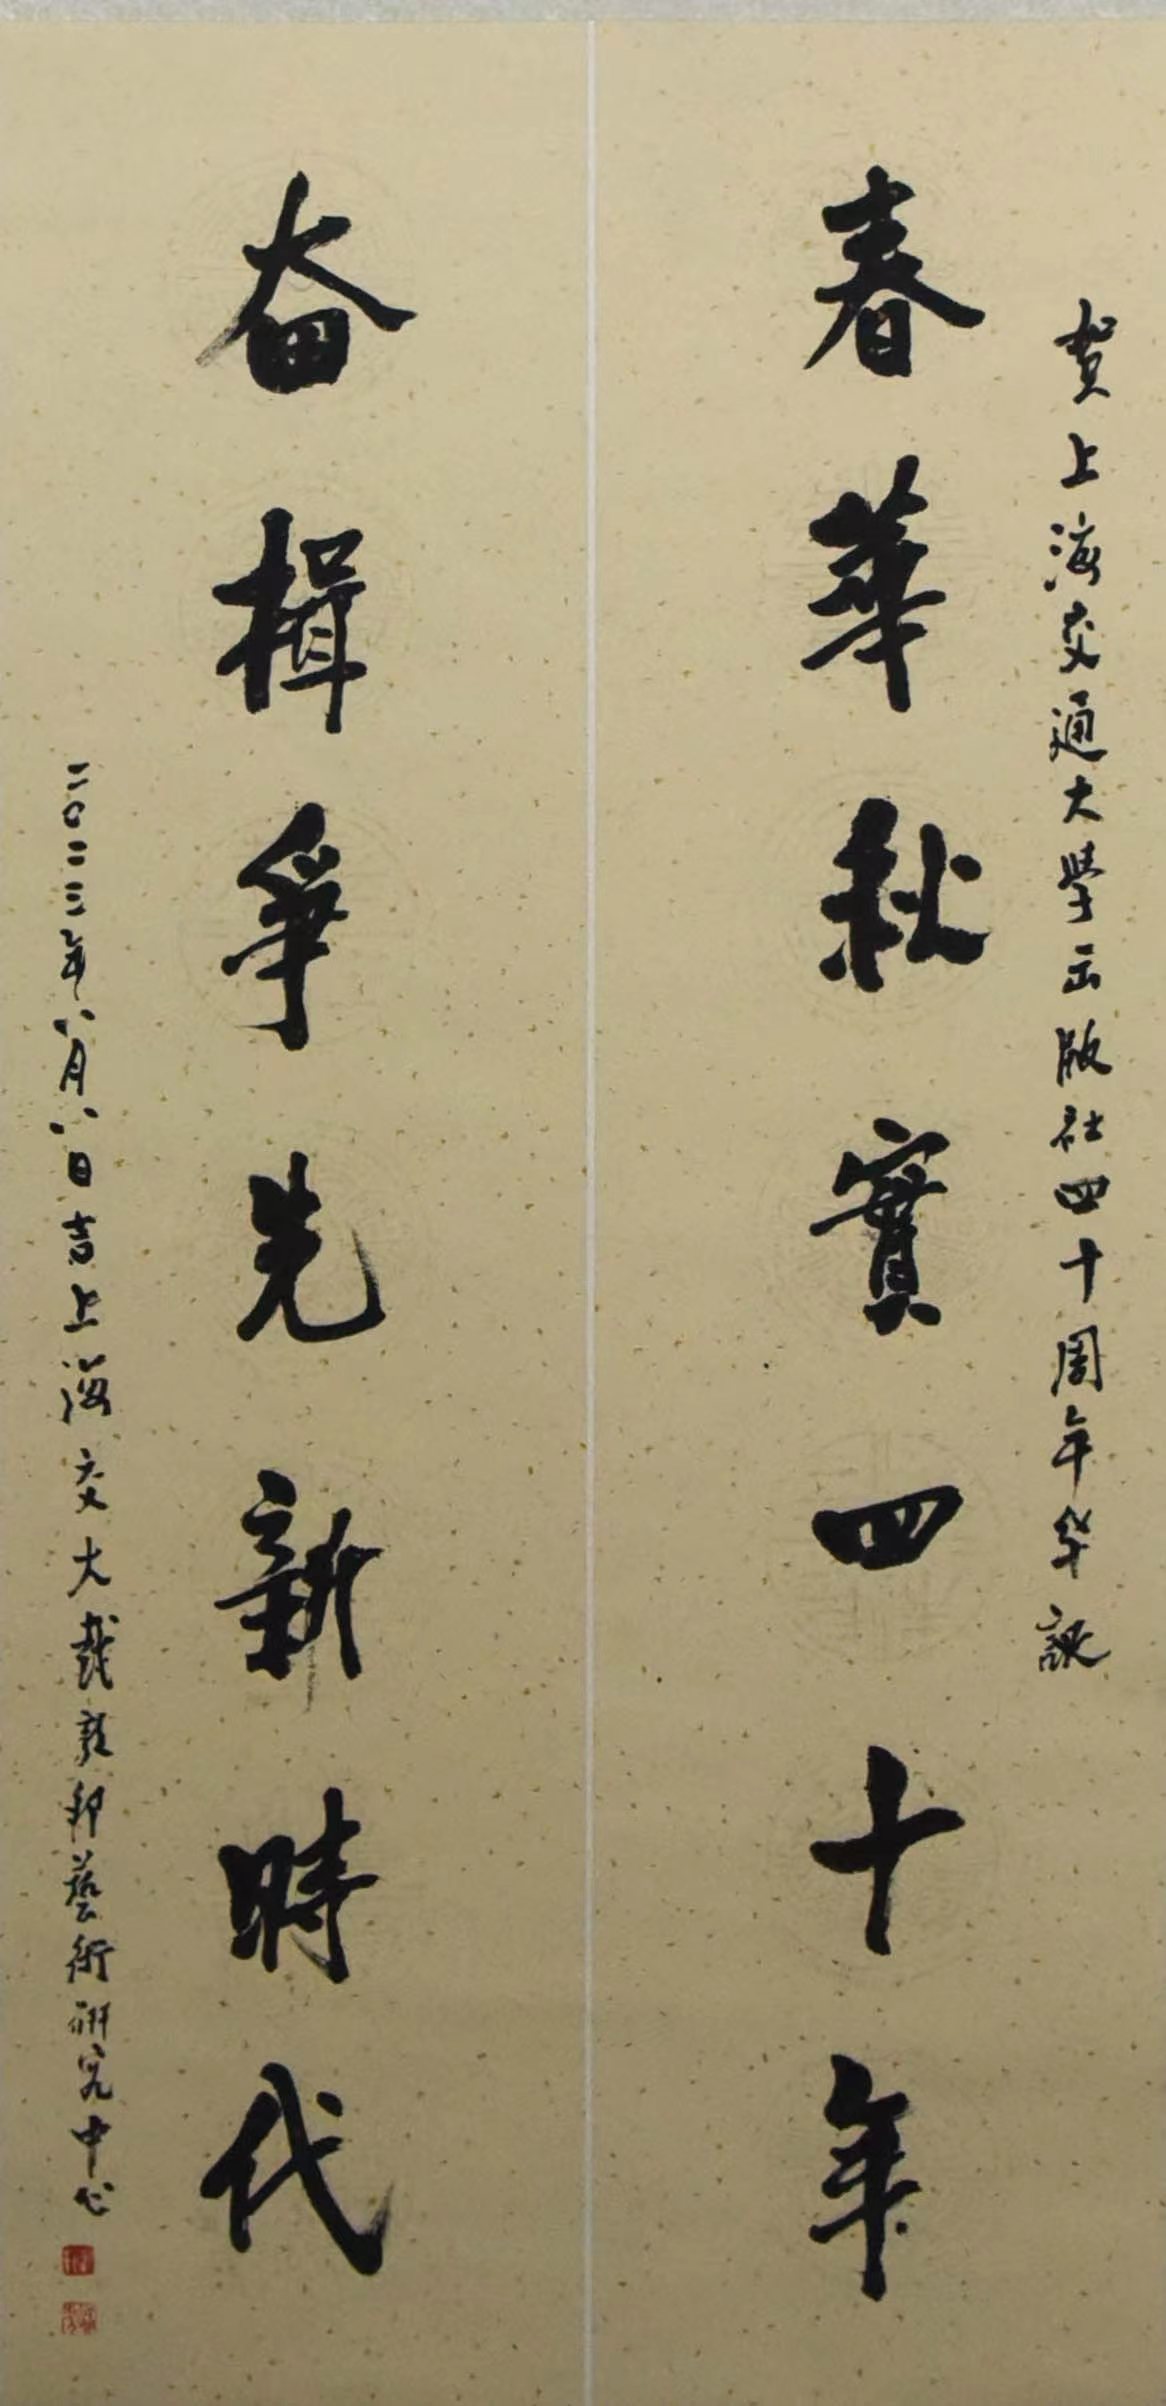 賀上海交通大學出版社四十周年华誕
春華秋實四十年
奋楫爭先新時代
二〇二三年八月八日吉上海交大戴敦邦藝術研究中心